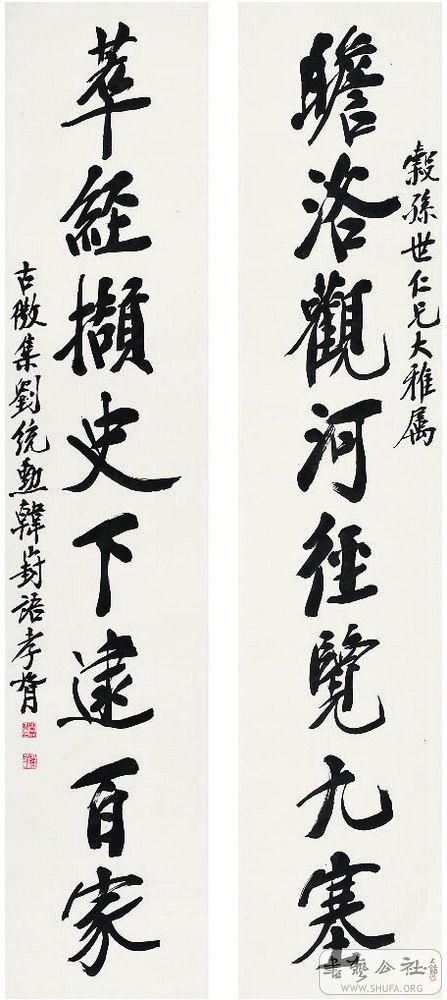 穀孫世仁兄大雅属
瞻洛觀河徑覽九塞
萃經擷史下逮百家
古微集劉統勳韓崶語孝胥
書藝公社
WWW.SHUFA.ORG